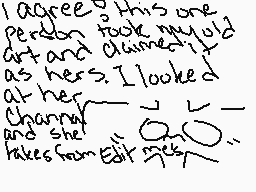 I agree, this one
person took my old
art and claimed it
as hers. I looked
at her
channal
and she
takes from Edit me's